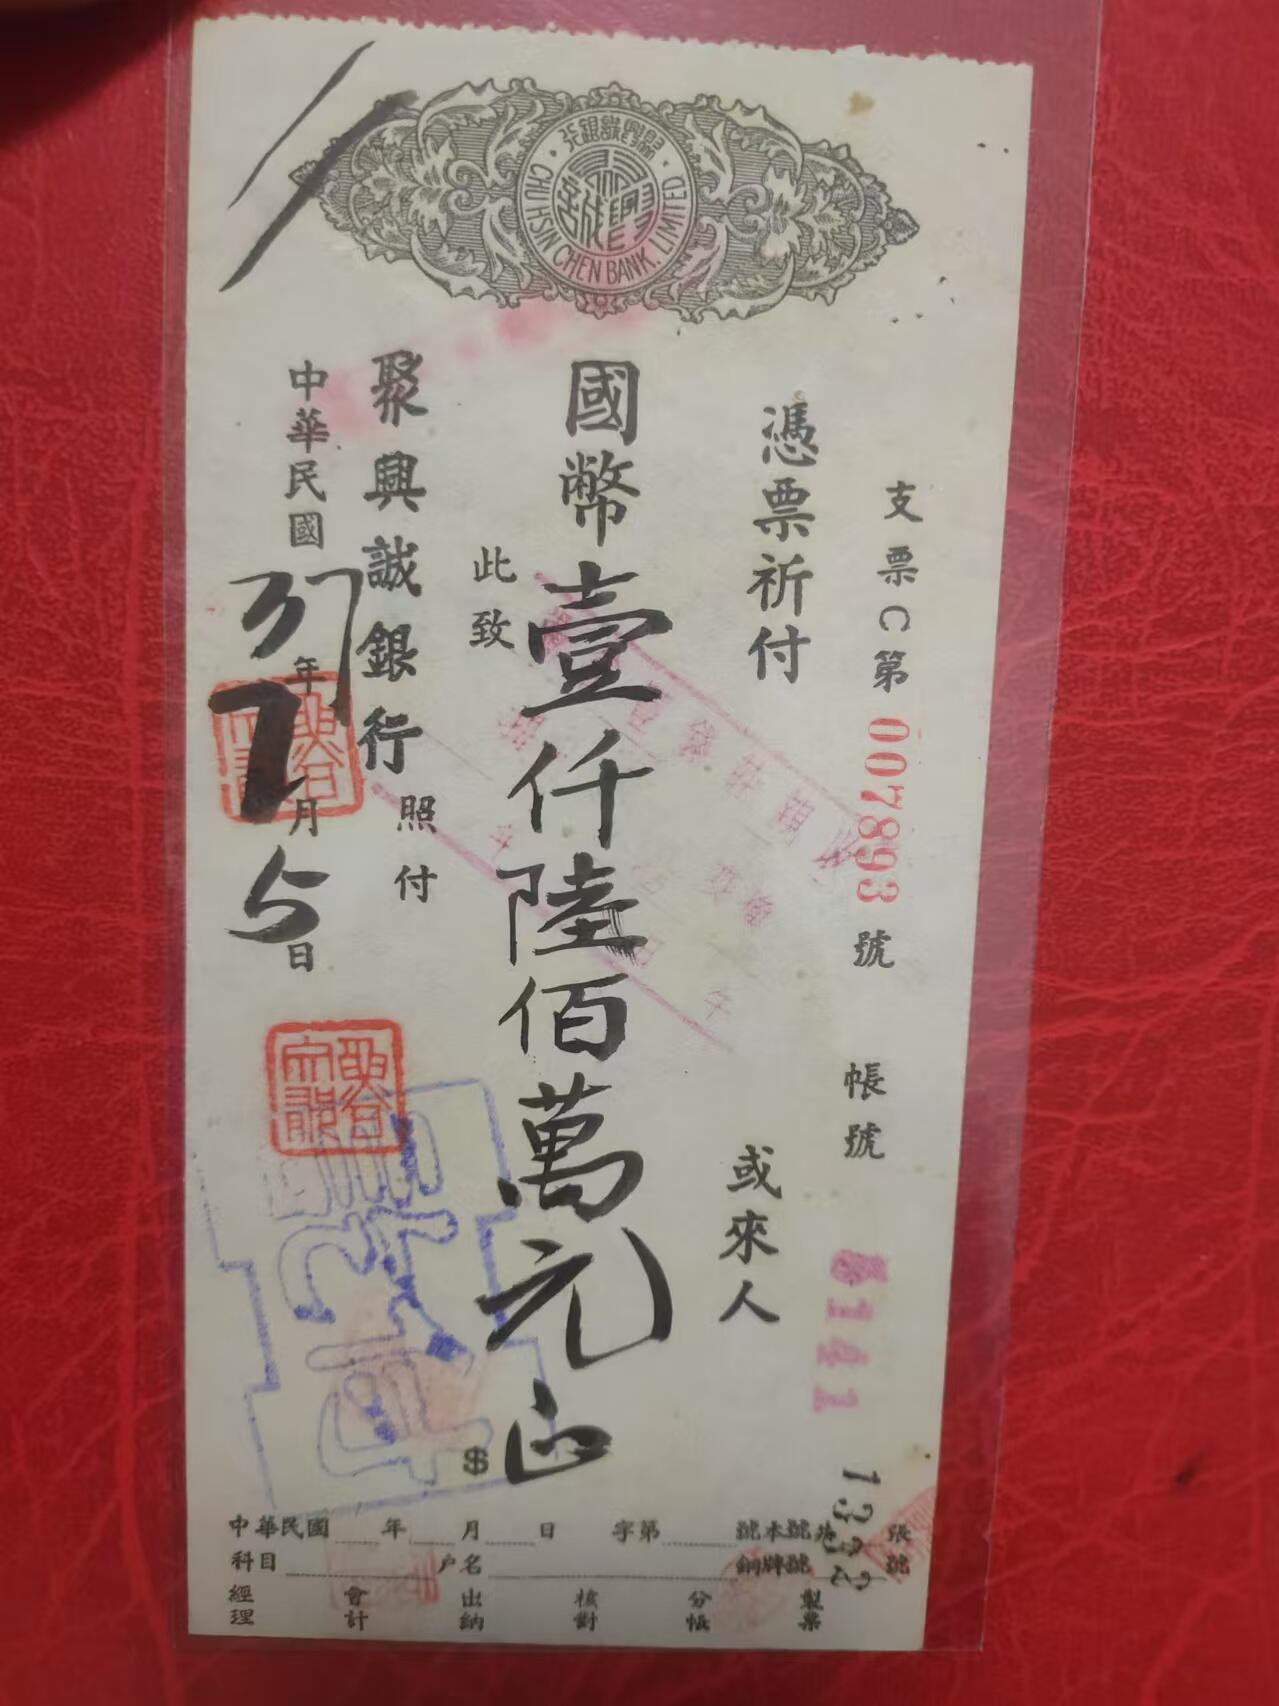 聚興誠銀行
CHU HSIN CHEN BANK. LIMITED
支票C第007893號 帳號 5141
憑票祈付 或來人
國幣壹仟陸佰萬元正
$
此致
聚興誠銀行 照付
中華民國37年7月5日
1332
中華民國 年 月 日 字第 號本號共 張
科目 户名 銅牌號 號
經理 會計 出納 核對 分帳 製票